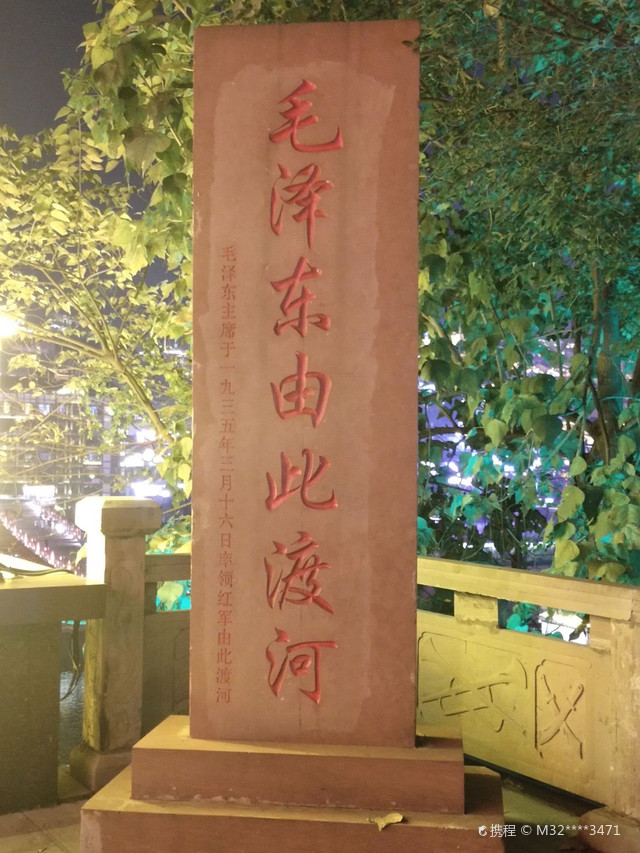 毛泽东由此渡河
毛泽东主席于一九三五年三月十六日率领红军由此渡河
携程 © M32****3471